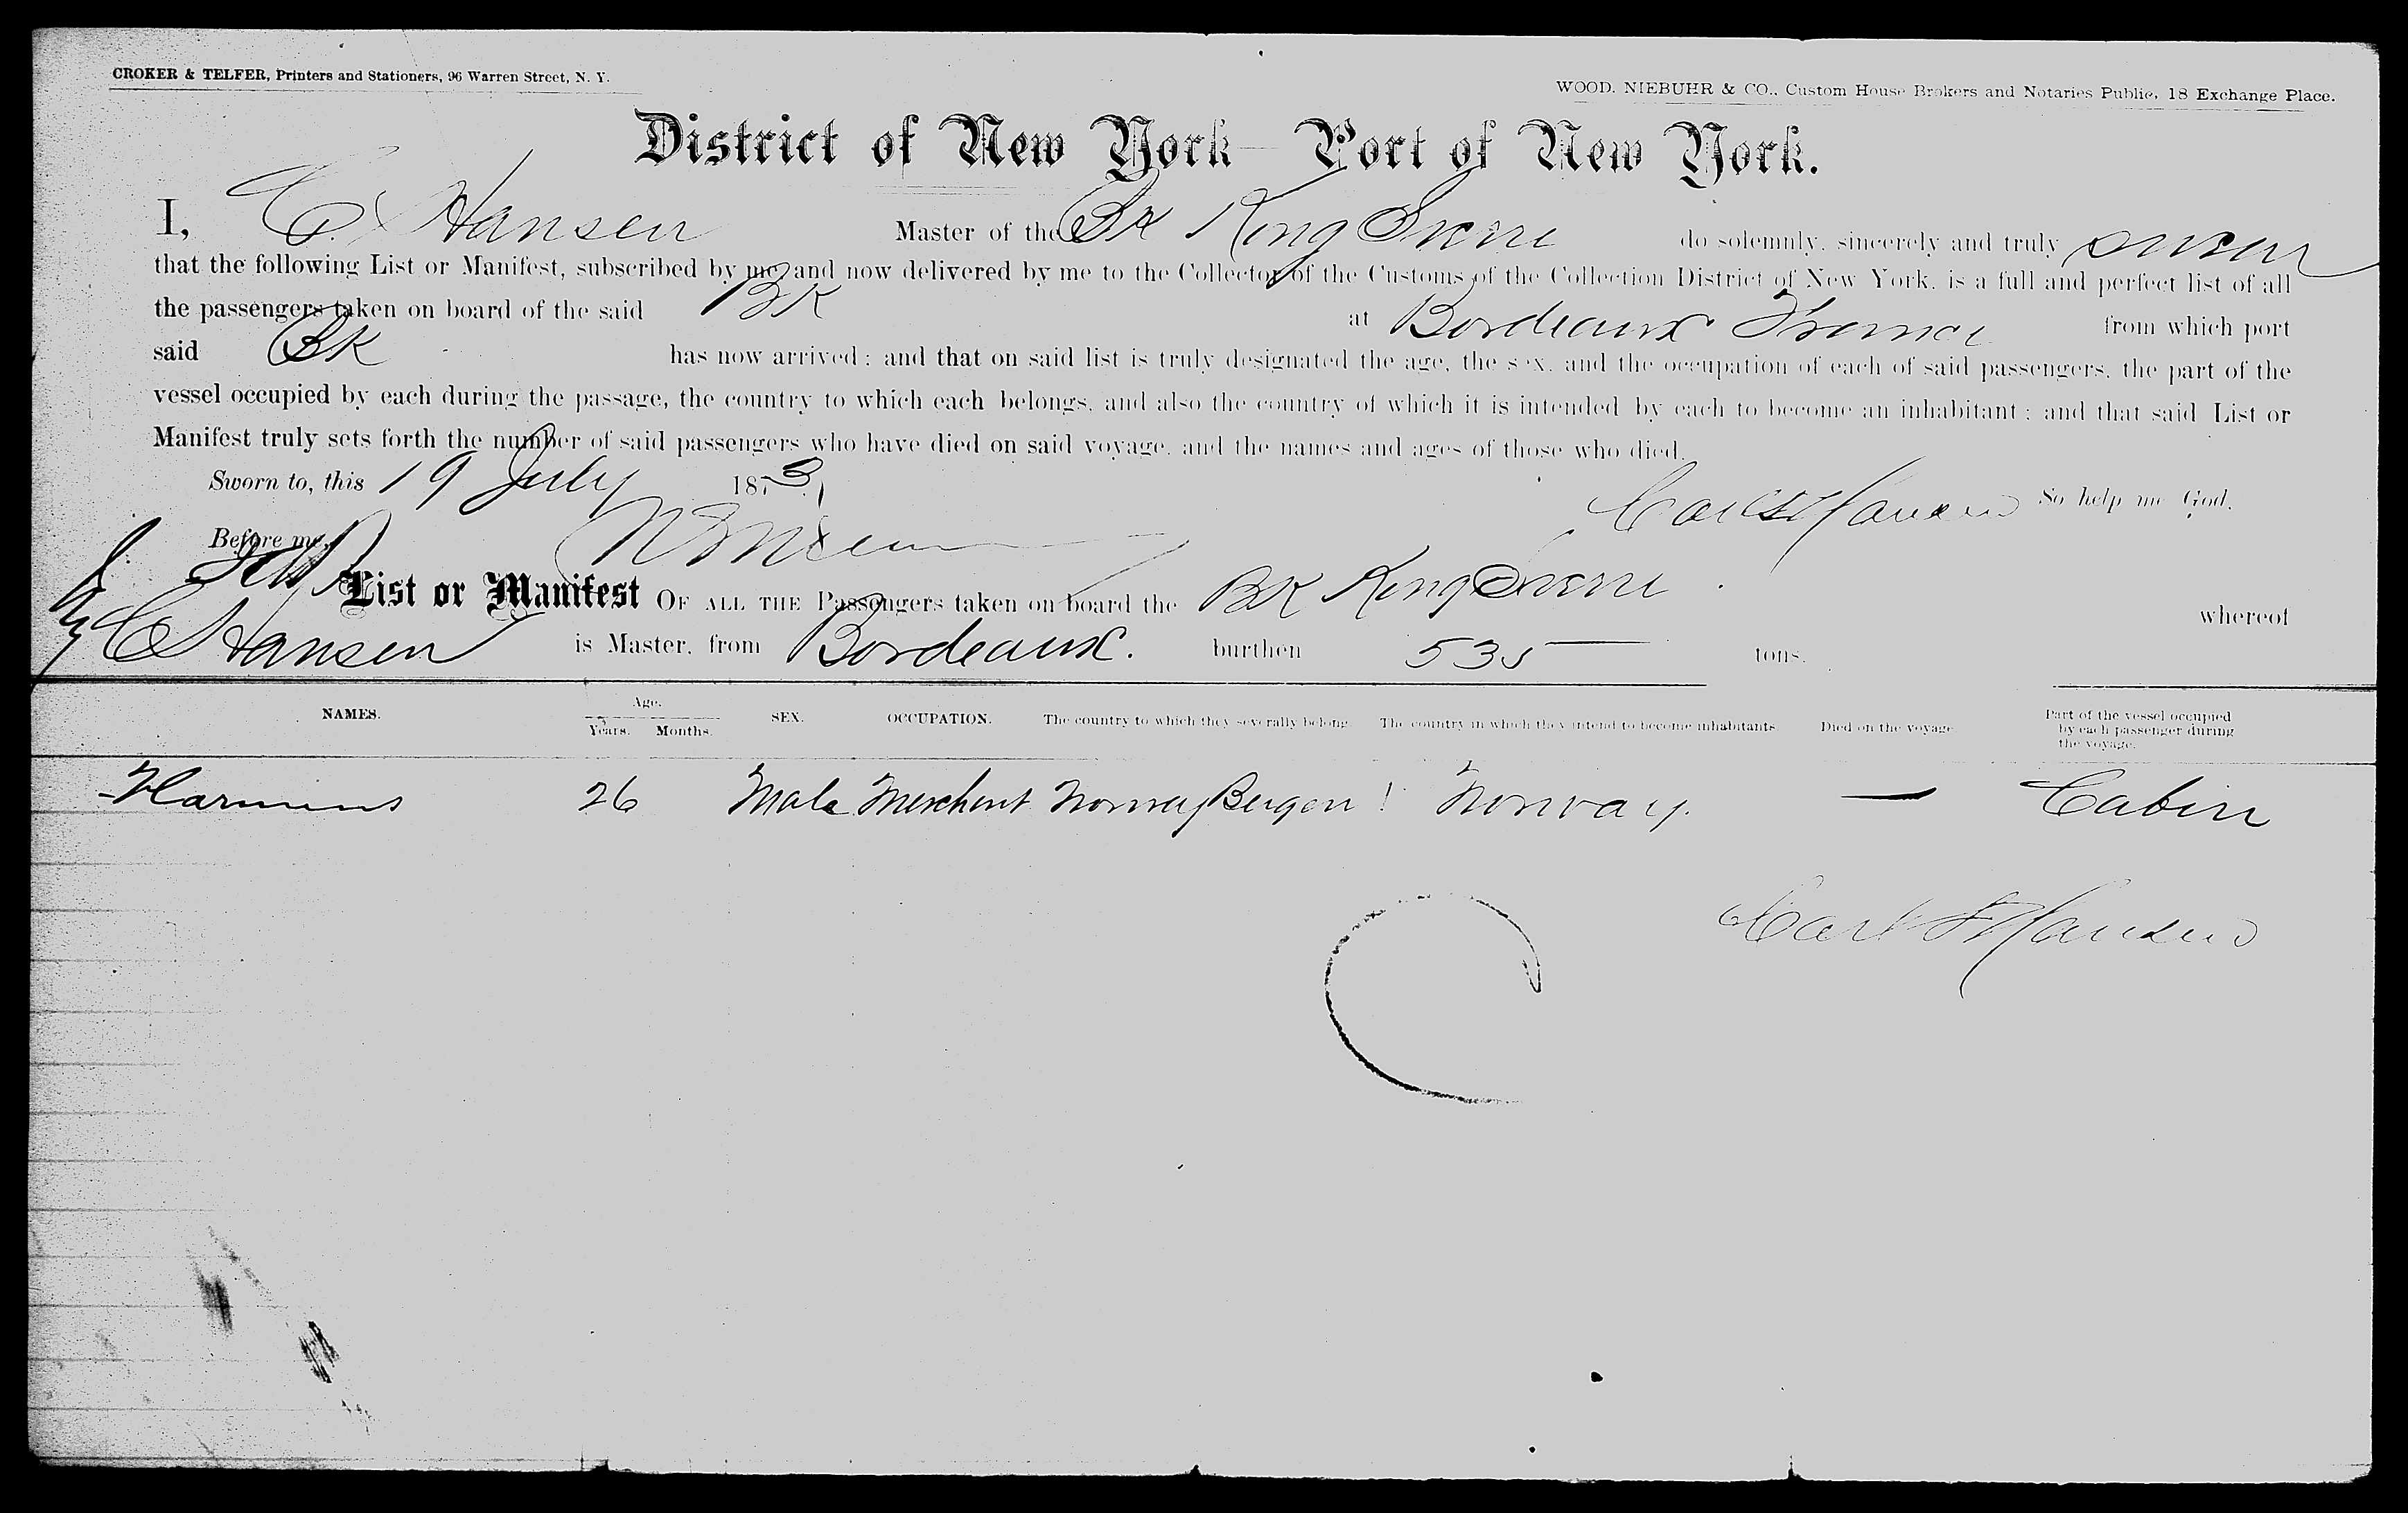 CROKER & TELFER, Printers and Stationers, 96 Warren Street, N. Y.
WOOD, NIEBUHR & CO., Custom House Brokers and Notaries Public, 18 Exchange Place.
District of New York—Port of New York.
I, C. Hansen Master of the Bk King Sverre do solemnly, sincerely and truly swear
that the following List or Manifest, subscribed by me and now delivered by me to the Collector of the Customs of the Collection District of New York, is a full and perfect list of all
the passengers taken on board of the said BK at Bordeaux France from which port
said BK has now arrived: and that on said list is truly designated the age, the sex, and the occupation of each of said passengers, the part of the
vessel occupied by each during the passage, the country to which each belongs, and also the country of which it is intended by each to become an inhabitant: and that said List or
Manifest truly sets forth the number of said passengers who have died on said voyage, and the names and ages of those who died.
Sworn to, this 19 July 1873 So help me God.
Before me, Hansen
List or Manifest OF ALL THE Passengers taken on board the BK King Sverre whereof
C Hansen is Master, from Bordeaux. burthen 535 tons.
NAMES. Age. Years. Months. SEX. OCCUPATION. The country to which they severally belong. The country in which they intend to become inhabitants. Died on the voyage. Part of the vessel occupied by each passenger during the voyage.
26 Male Merchant Norway Bergen Norway. — Cabin
Carl Hansen